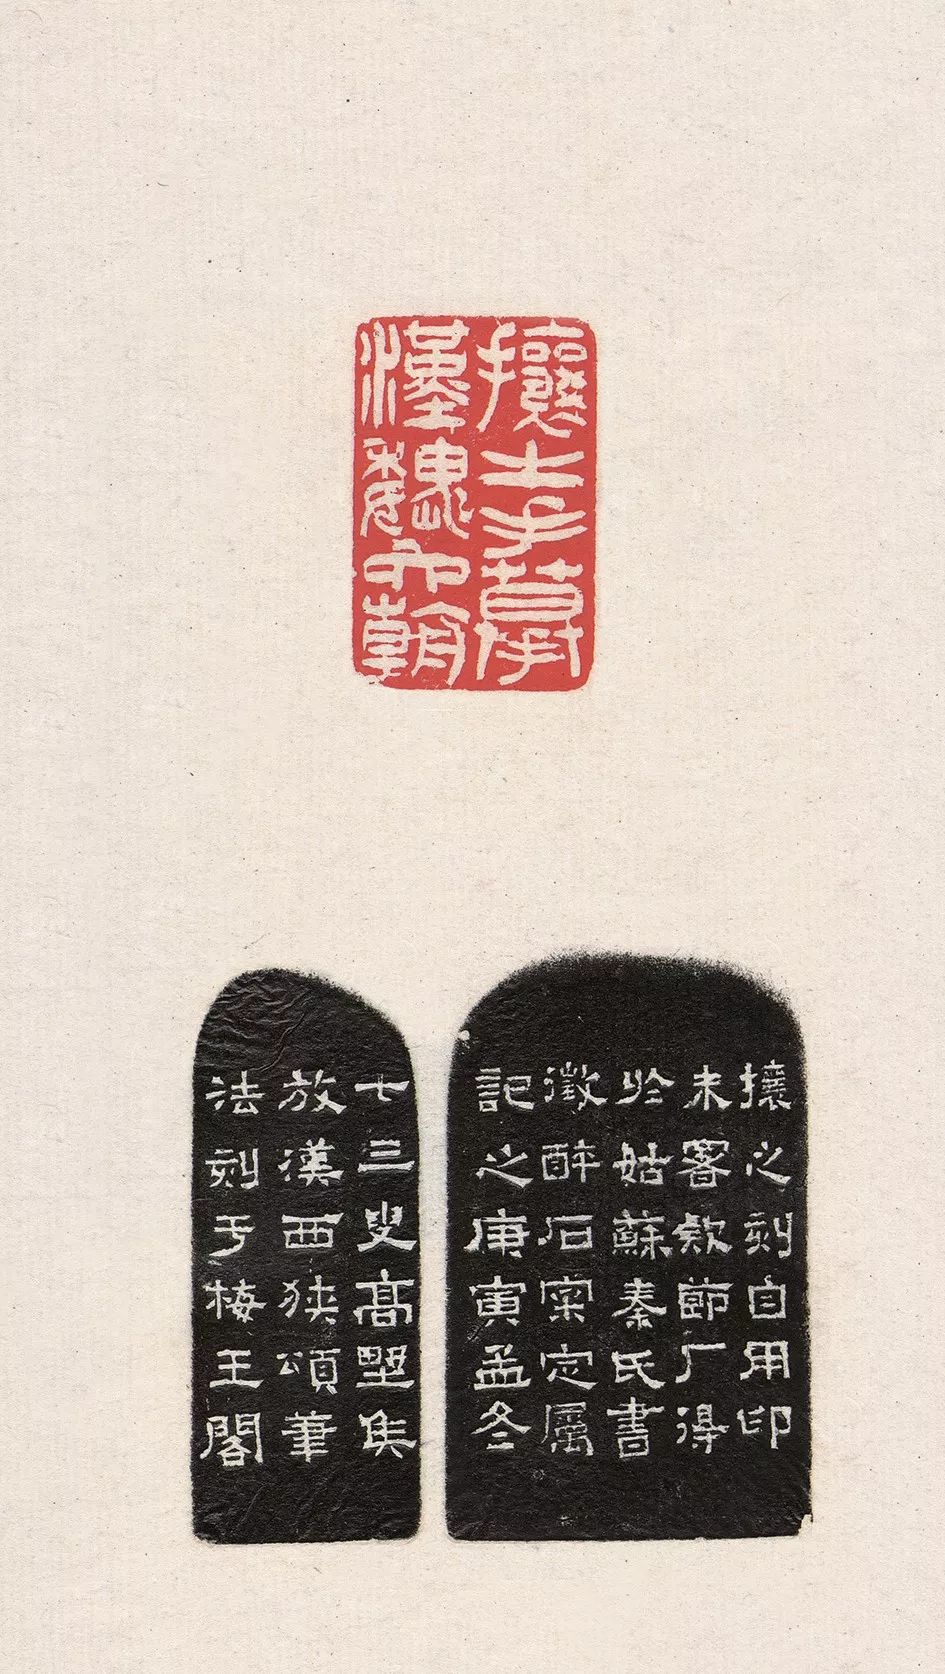 攘之手摹
漢魏六朝
攘之刻自用印
未署欵節厂得
於姑蘇秦氏書
徵醉石案定屬
記之庚寅孟冬
七三叟高埜侯
放漢西狹頌筆
法刻于梅王閣